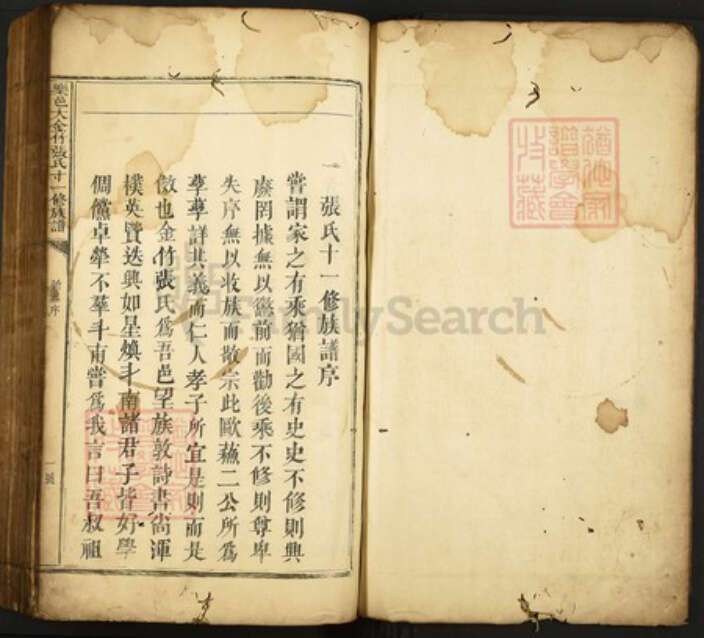 一張氏十一修族譜序
嘗謂家之有乘猶國之有史史不修則興
廢罔據無以懲前而勸後乘不修則尊卑
失序無以收族而敬宗此歐蘇二公所為
孳孳詳其義而仁人孝子所宜是則而是
傚也金竹張氏為吾邑望族敦詩書尚渾
樸英賢迭興如星煥斗南諸君子皆好學
倜儻卓犖不羣斗南嘗為我言曰吾叔祖
樂邑大金竹張氏十一修族譜
序
一號
譜學會
收藏
FamilySearch